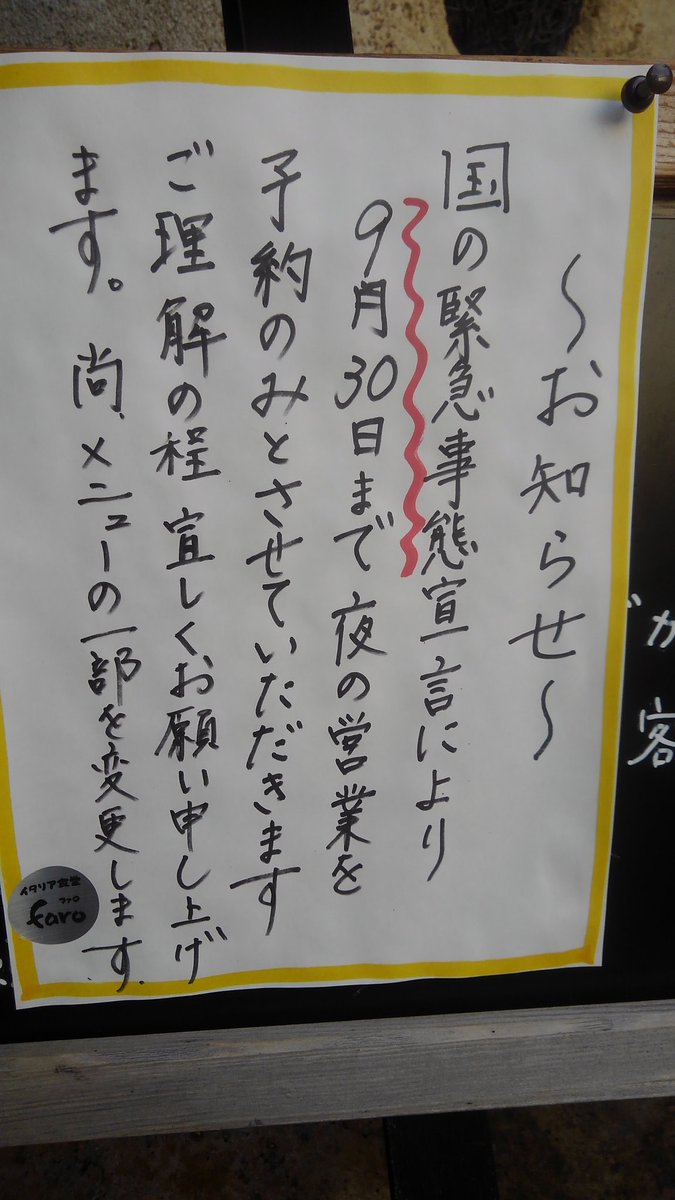 〜お知らせ〜
国の緊急事態宣言により
9月30日まで夜の営業を
予約のみとさせていただきます
ご理解の程宜しくお願い申し上げ
ます。尚、メニューの一部を変更します.
イタリア食堂
ファロ
faro
客